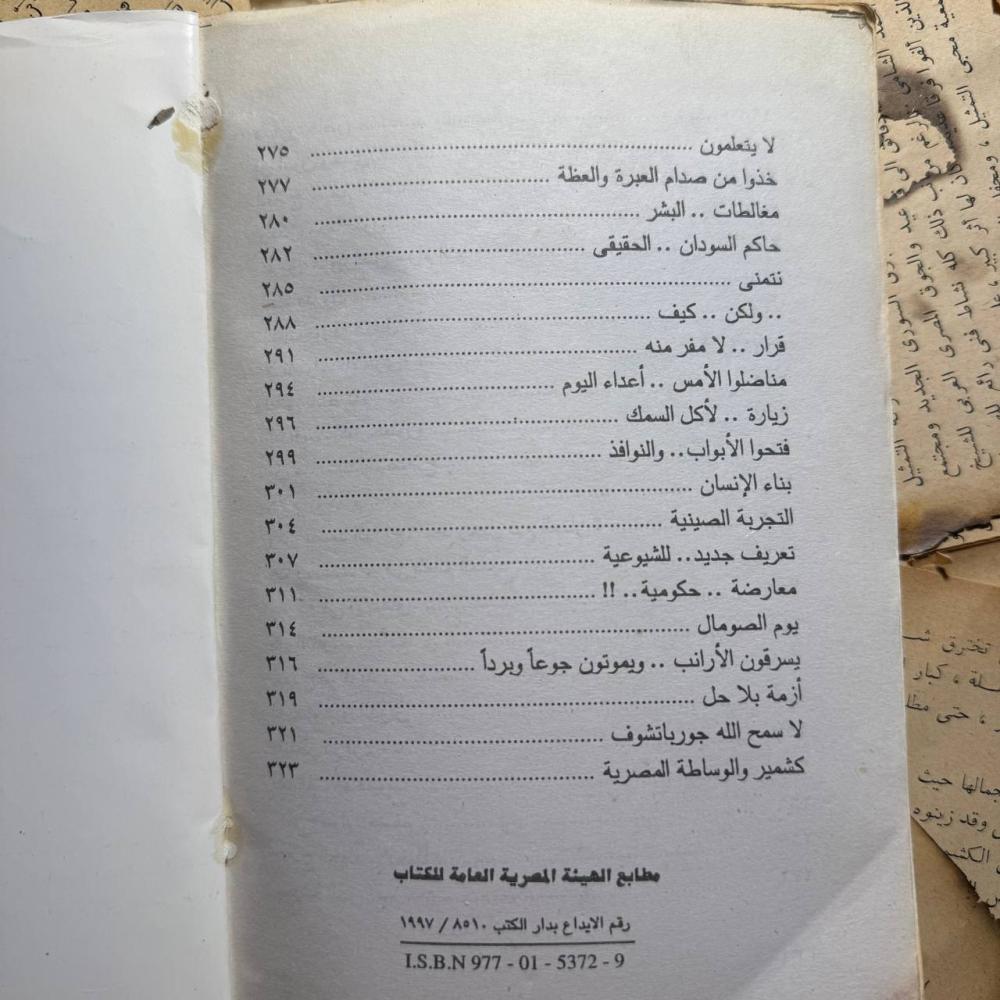 لا يتعلمون ........ ٢٧٥
خذوا من صدام العبرة والعظة ........ ٢٧٧
مغالطات .. البشر ........ ٢٨٠
حاكم السودان .. الحقيقى ........ ٢٨٢
نتمنى ........ ٢٨٥
.. ولكن .. كيف ........ ٢٨٨
قرار .. لا مفر منه ........ ٢٩١
مناضلوا الأمس .. أعداء اليوم ........ ٢٩٤
زيارة .. لأكل السمك ........ ٢٩٦
فتحوا الأبواب.. والنوافذ ........ ٢٩٩
بناء الإنسان ........ ٣٠١
التجربة الصينية ........ ٣٠٤
تعريف جديد.. للشيوعية ........ ٣٠٧
معارضة .. حكومية.. !! ........ ٣١١
يوم الصومال ........ ٣١٤
يسرقون الأرانب .. ويموتون جوعاً وبرداً ........ ٣١٦
أزمة بلا حل ........ ٣١٩
لا سمح الله جورباتشوف ........ ٣٢١
كشمير والوساطة المصرية ........ ٣٢٣
مطابع الهيئة المصرية العامة للكتاب
رقم الايداع بدار الكتب ٨٥١٠ / ١٩٩٧
I.S.B.N 977 - 01 - 5372 - 9
تخترق
سلة ، كبار
، حتى
جمالها حيث
وقد زينوه